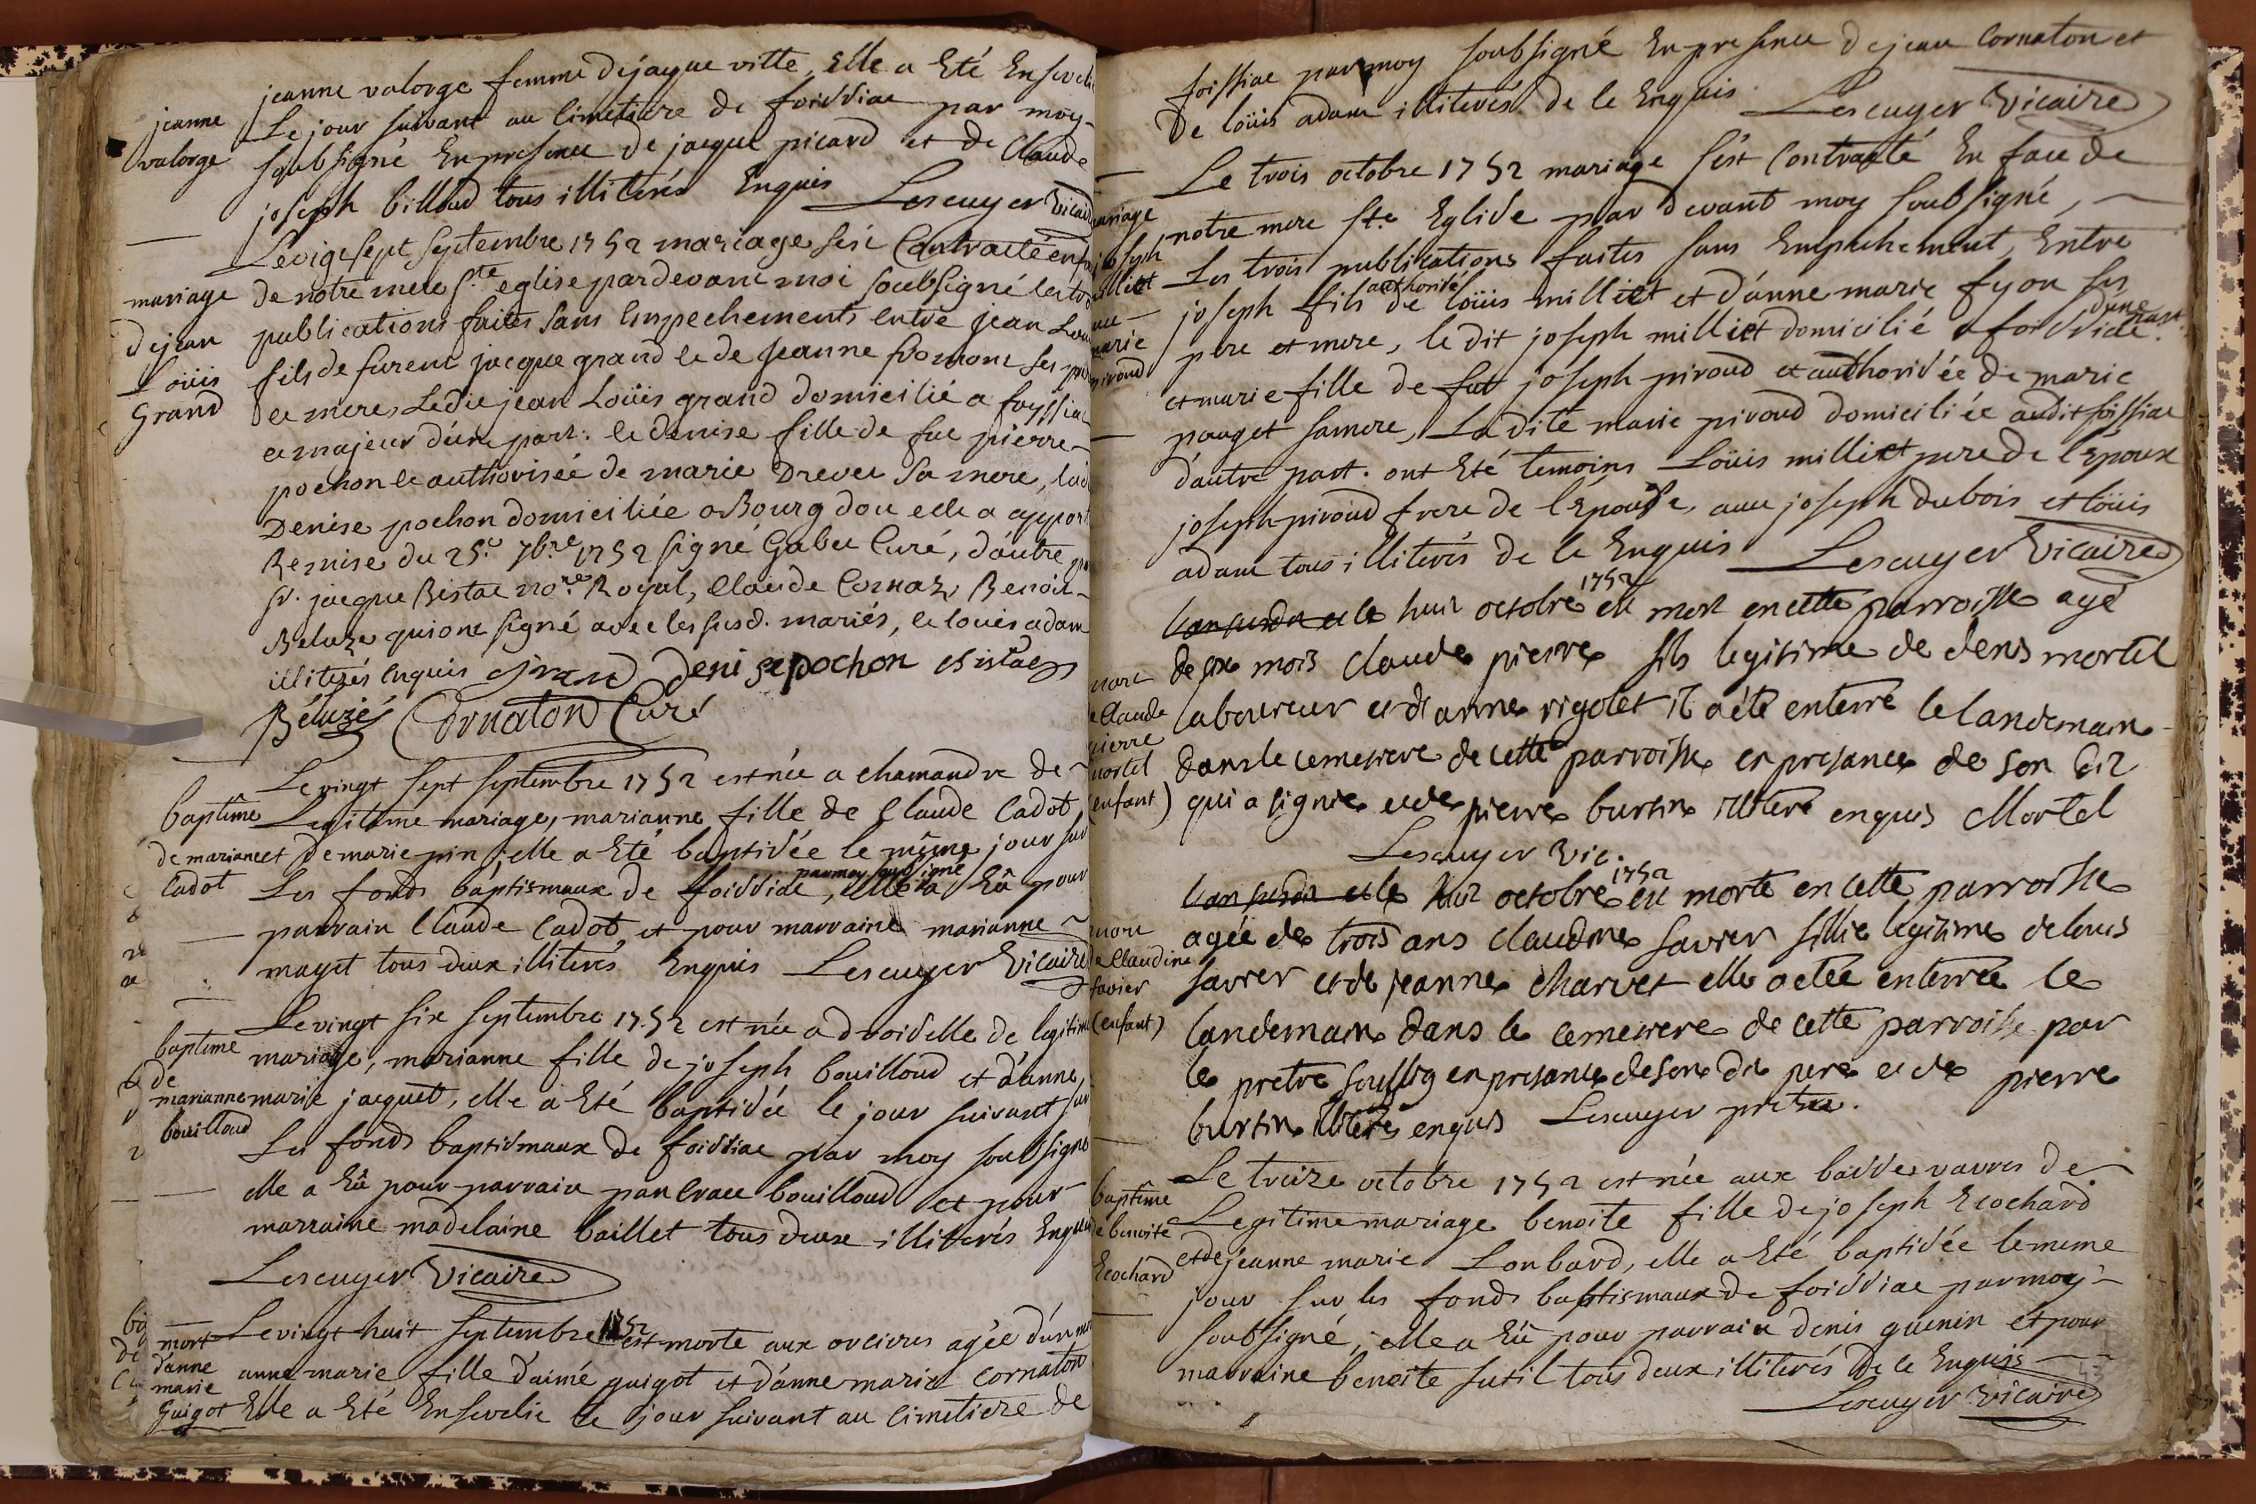 jeanne valorge femme dejaque vitte, Elle a Eté Ensevelie
jeanne
valorge
Le jour suivant au Cimetiere de foissiac par moy
soubsigné En presence de jacque picard et de Claude
joseph billoud tous illiterés Enquis Lescuyer Vicaire
mariage
dejean
Loüis
Grand
Levigtsept Septembre 1752 mariage sest Contracté en face
de notre mere Ste eglise pardevant moi soubsigné les trois
publications faites sans Empechements entre jean Louis
fils de furent jacque grand et de jeanne fromont ses pere
et mere, Ledit jean Loüis grand domicilié a foyssiac
et majeur d'une part: et denise fille de fut pierre
pochon et authorisée de marie Drevet Sa mere, ladite
Denise pochon domiciliée a Bourg dou elle a apporté
Remise du 25e 7bre 1752 signé Gabet Curé, d'autre part
sr. jacque Bistac nore Royal, Claude Cornaz, Benoit
Beluze qui ont signé avec les susd. mariés, et loüis adam
illiterés enquis grand denise pochon Bistac
Béluze Cornaton Curé
baptême
de marianne
Cadot
Levingt sept septembre 1752 est née a chamandre de
Legitime mariage, marianne fille de Claude Cadot
et de marie pin, elle a Eté baptisée le même jour sur
Les fonds baptismaux de foissiac, par moy soubsigné elle a Eû pour
parrain Claude Cadot et pour marraine marianne
maget tous deux illiterés Enquis Lescuyer Vicaire
baptême
de
marianne
bouilloud
Levingt six septembre 1752 est née a droiselle de legitime
mariage, marianne fille de joseph bouilloud et d'anne
marie jacquet, elle a Eté baptisée le jour suivant sur
Les fonds baptismaux de foissiac par moy soubsigné
elle a Eû pour parrain pancrace bouilloud et pour
marraine madelaine baillet tous deux illiterés Enquis
Lescuyer Vicaire
mort
d'anne
marie
Guigot
Levingt huit septembre 1752 est morte aux orcieres agée d'un
anne marie fille d'aimé guigot et d'anne marie cornaton
Elle a Eté Ensevelie le jour suivant au Cimetiere de
foissiac par moy soubsigné En presence dejean Cornaton et
De loüis adam illiterés de ce Enquis. Lescuyer Vicaire
mariage
joseph
milliet
marie
piroud
Le trois octobre 1752 mariage s'est Contracté En face de
notre mere Ste Eglise par devant moy soubsigné,
Les trois publications faites sans Empechement, Entre
joseph fils authorisé de loüis milliet et d'anne marie fyon ses
pere et mere, le dit joseph milliet domicilié a foissiac d'une part.
et marie fille de fut joseph piroud et authorisée de marie
pouget sa mere, La dite marie piroud domiciliée audit foissiac
d'autre part. ont Eté temoins Loüis milliet pere de l'Epoux
joseph piroud frere de l'Epouse, avec joseph dubois et loüis
adam tous illiterés de ce Enquis Lescuyer Vicaire
mort
de Claude
pierre
mortel
(enfant)
L'an susdit et le huit octobre 1752 est mort en cette parroisse agé
de six mois Claude pierre fils legitime de denis mortel
laboureur et d'anne rigolet il a été enterré le landemain
dans le cemetiere de cette parroisse en presance de son dit
qui a signé et de pierre burtin illiteré enquis Mortel
Lescuyer Vic.
mort
de Claudine
favier
(enfant)
L'an susdit et le huit octobre 1752 est morte en cette parroisse
agée de trois ans claudine favier fillie legitime de louis
favier et de jeanne charvet elle a etée enterrée le
landemain dans le cemetiere de cette parroisse par
le pretre soussig en presance de son dit pere et de pierre
burtin illiterés enquis Lescuyer pretre.
baptême
de benoite
Ecochard
Le treize octobre 1752 est née aux basses vavres de
Legitime mariage benoite fille dejoseph Ecochard
et de jeanne marie Lonbard, elle a Eté baptisée le meme
jour sur les fonds baptismaux de foissiac par moy
soubsigné, elle a Eû pour parrain denis guenin et pour
marraine benoite sutil tous deux illiterés de ce Enquis
Lescuyer Vicaire